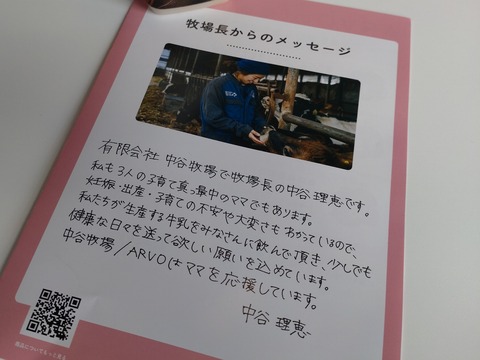 牧場長からのメッセージ
有限会社 中谷牧場で牧場長の中谷 理恵です。
私も3人の子育て真っ最中のママでもあります。
妊娠・出産・子育ての不安や大変さもわかっているので、
私たちが生産する牛乳をみなさんに飲んで頂き、少しでも
健康な日々を送って欲しい願いを込めています。
中谷牧場/ARVOはママを応援しています。
中谷 理恵
商品についてもっと見る